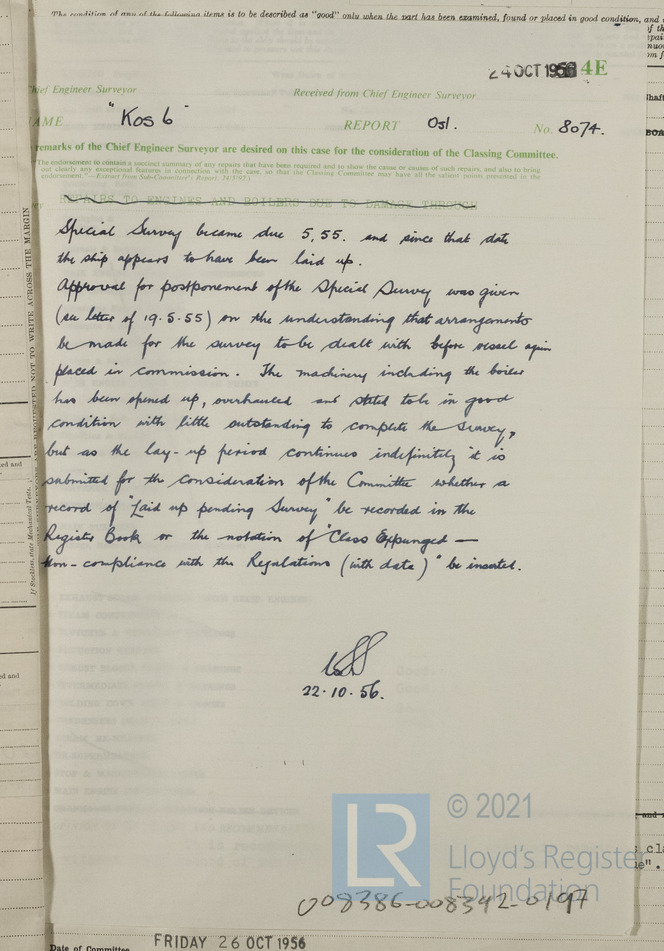 The condition of any of the following items is to be described as "good" only when the part has been examined, found or placed in good condition, and
24 OCT 1956 4E
Chief Engineer Surveyor Received from Chief Engineer Surveyor
NAME "Kos 6" REPORT Osl. No. 8074.
remarks of the Chief Engineer Surveyor are desired on this case for the consideration of the Classing Committee.
(The endorsement to contain a succinct summary of any repairs that have been required and to show the cause or causes of such repairs, and also to bring
out clearly any exceptional features in connection with the case, so that the Classing Committee may have all the salient points presented in the
endorsement"—Extract from Sub-Committee's Report, 21/1/92.)
REPAIRS TO ENGINES AND BOILERS DUE TO DAMAGE THROUGH
Special Survey became due 5,55. and since that date
the ship appears to have been laid up.
Approval for postponement of the Special Survey was given
(see letter of 19.5.55) on the understanding that arrangements
be made for the survey to be dealt with before vessel again
placed in commission. The machinery including the boiler
has been opened up, overhauled and stated to be in good
condition with little outstanding to complete the Survey,
but as the lay-up period continues indefinitely it is
submitted for the consideration of the Committee whether a
record of "Laid up pending Survey" be recorded in the
Register Book or the notation of "Class Expunged —
Non-compliance with the Regulations (with date)" be inserted.
22.10.56.
© 2021
LR
Lloyd's Register
Foundation
008386-008392-0197
Date of Committee FRIDAY 26 OCT 1956
ARE REQUESTED NOT TO WRITE ACROSS THE MARGIN
If Stockton, state Mechanical Tests.